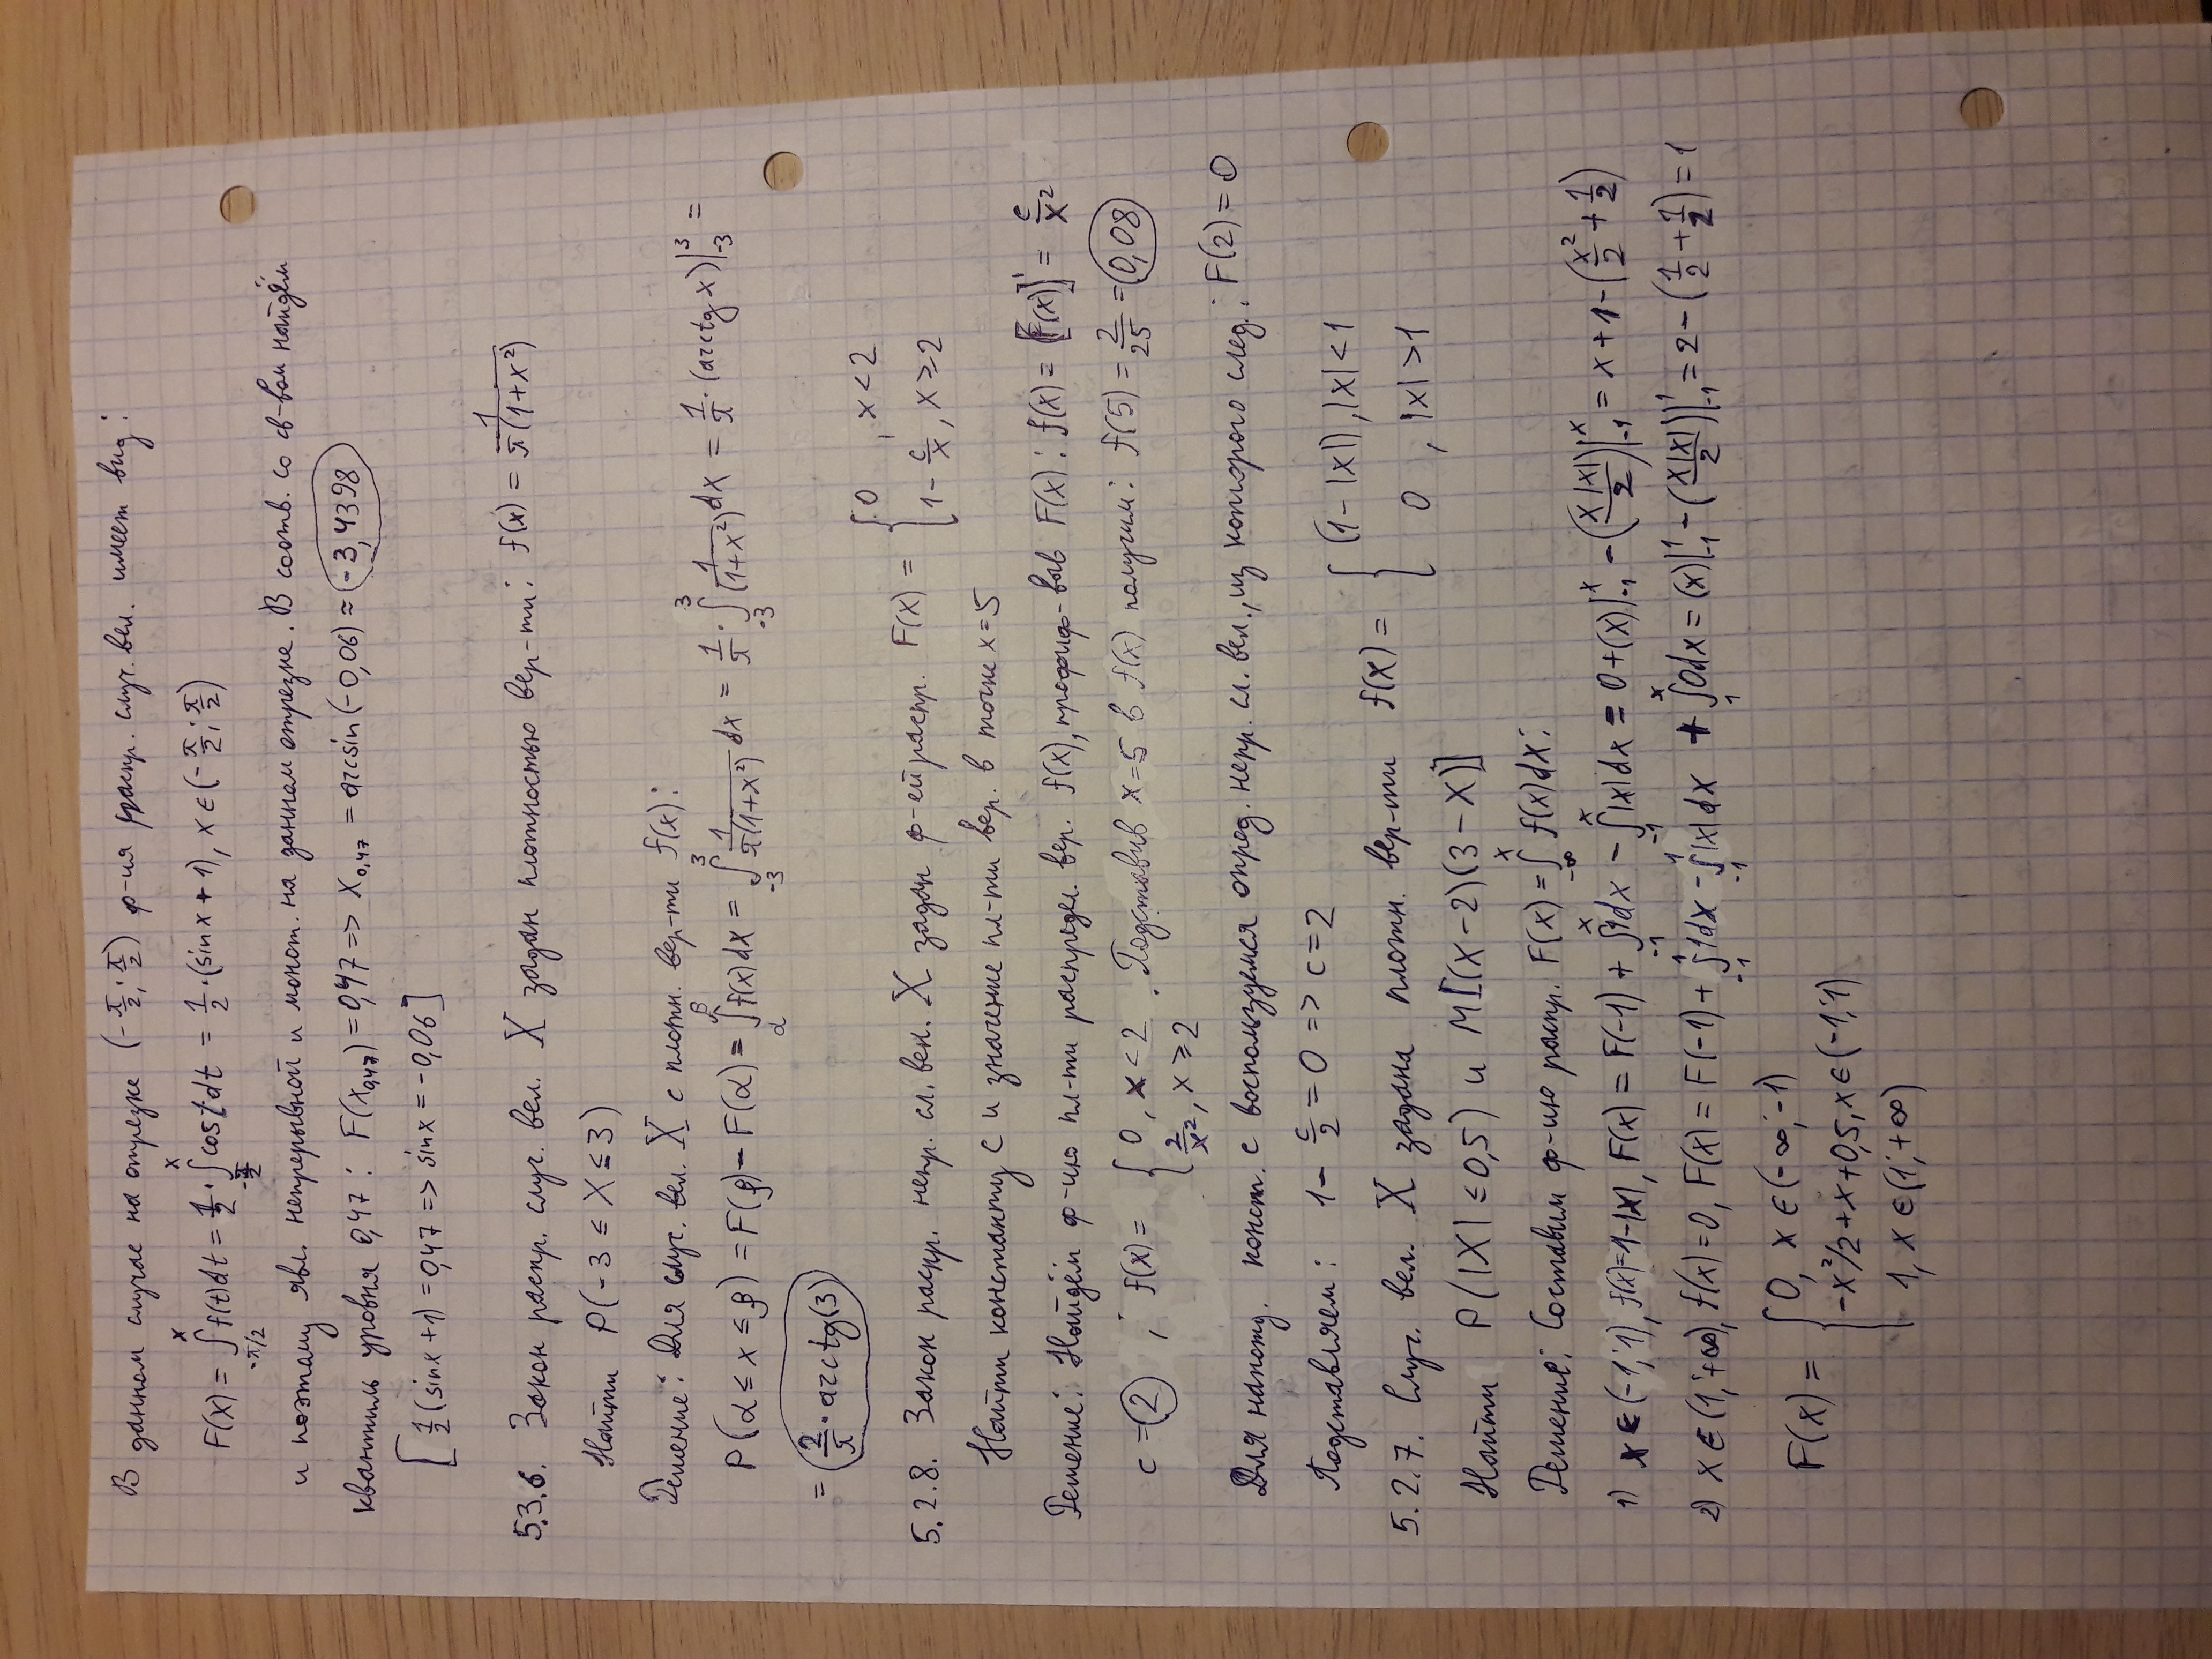 В данном случае на отрезке (-π/2; π/2) ф-ия распр. случ. вел. имеет вид:
F(x) = ∫_{-π/2}^{x} f(t)dt = 1/2 · ∫_{-π/2}^{x} cos t dt = 1/2 · (sin x + 1), x ∈ (-π/2; π/2)
и поэтому явл. непрерывной и монот. на данном отрезке. В соотв. со св-вом найдём
квантиль уровня 0,47: F(x_{0,47}) = 0,47 => x_{0,47} = arcsin(-0,06) ≈ -3,4398
[1/2 (sin x + 1) = 0,47 => sin x = -0,06]
5.3.6. Закон распр. случ. вел. X задан плотностью вер-ти: f(x) = 1/(π(1+x²))
Найти P(-3 ≤ X ≤ 3)
Решение: Для случ. вел. X с плотн. вер-ти f(x):
P(α ≤ x ≤ β) = F(β) - F(α) = ∫_{α}^{β} f(x)dx = ∫_{-3}^{3} 1/(π(1+x²)) dx = 1/π · ∫_{-3}^{3} 1/(1+x²) dx = 1/π · (arctg x)|_{-3}^{3} =
= 2/π · arctg(3)
5.2.8. Закон распр. непр. сл. вел. X задан ф-ей распр. F(x) = { 0, x < 2
1 - c/x, x ≥ 2
Найти константу c и значение пл-ти вер. в точке x = 5
Решение: Найдём ф-ию пл-ти распредел. вер. f(x), продиф-выв F(x): f(x) = [F(x)]' = c/x²
c = 2 ; f(x) = { 0, x < 2 . Подставив x = 5 в f(x) получим: f(5) = 2/25 = 0,08
2/x², x ≥ 2
Для нахожд. конст. c воспользуемся опред. непр. сл. вел., из которого след.: F(2) = 0
Подставляем: 1 - c/2 = 0 => c = 2
5.2.7. Случ. вел. X задана плотн. вер-ти f(x) = { (1-|x|), |x| < 1
0, |x| > 1
Найти P(|X| ≤ 0,5) и M[(X-2)(3-X)]
Решение: Составим ф-ию распр. F(x) = ∫_{-∞}^{x} f(x)dx:
1) x ∈ (-1; 1), f(x) = 1-|x|, F(x) = F(-1) + ∫_{-1}^{x} 1dx - ∫_{-1}^{x} |x|dx = 0 + (x)|_{-1}^{x} - (x|x|/2)|_{-1}^{x} = x + 1 - (x²/2 + 1/2)
2) x ∈ (1; +∞), f(x) = 0, F(x) = F(-1) + ∫_{-1}^{1} 1dx - ∫_{-1}^{1} |x|dx + ∫_{1}^{x} 0dx = (x)|_{-1}^{1} - (x|x|/2)|_{-1}^{1} = 2 - (1/2 + 1/2) = 1
F(x) = { 0, x ∈ (-∞; -1)
-x²/2 + x + 0,5, x ∈ (-1; 1)
1, x ∈ (1; +∞)